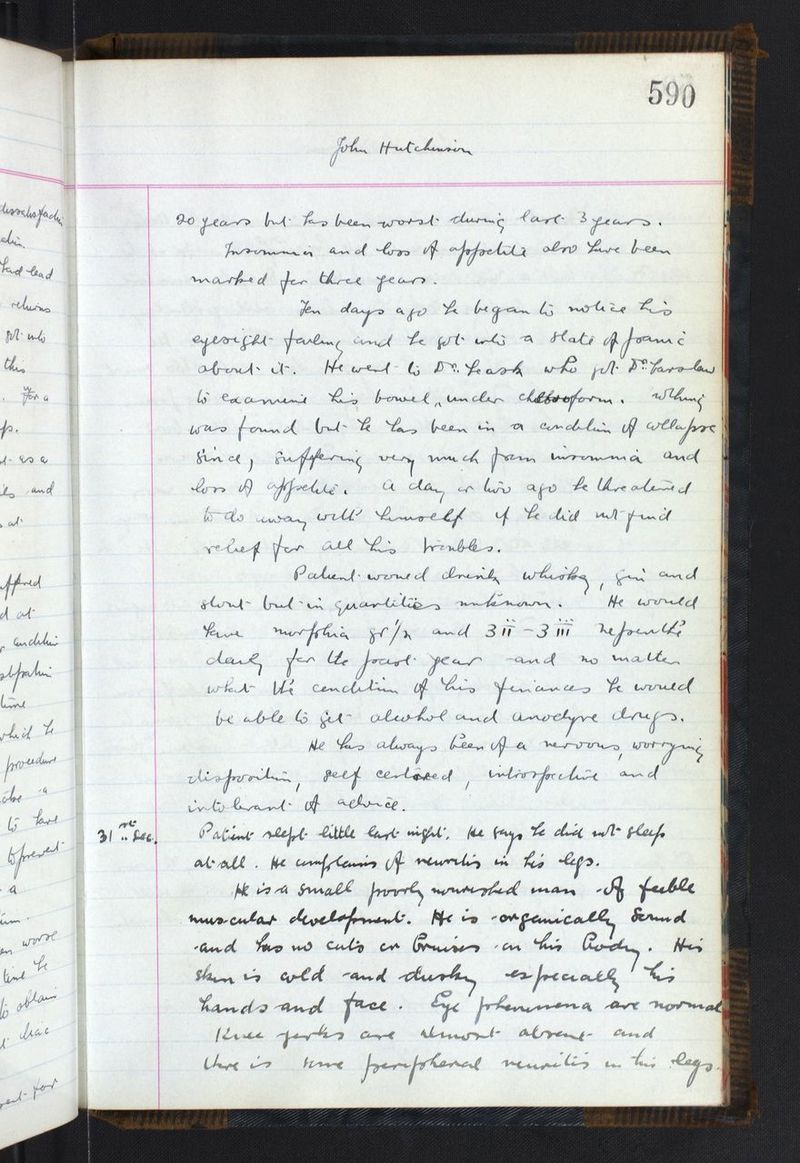 590
John Hutchinson
20 years but has been worst during last 3 years.
Insomnia and loss of appetite also have been
marked for three years.
Ten days ago he began to notice his
eyesight failing and he got into a state of panic
about it. He went to Dr. Leask who got Dr.
to examine his bowel, under chloroform. Nothing
was found but he has been in a condition of collapse
since, suffering very much from insomnia and
loss of appetite. A day or two ago he threatened
to do away with himself if he did not find
relief for all his troubles.
Patient would drink whisky, gin and
stout but in quantities unknown. He would
have morphia and ʒii - ʒiii Nepenthe
daily for the past year and no matter
what the condition of his finances he would
be able to get alcohol and anodyne drugs.
He has always been of a nervous, worrying
disposition, self centered, introspective and
intolerant of advice.
31st Dec. Patient slept little last night. He says he did not sleep
at all. He complains of neuritis in his legs.
He is a small poorly nourished man of feeble
muscular development. He is organically sound
and has no cuts or bruises on his body. His
skin is cold and dusky especially his
hands and face. Eye phenomena are normal
Knee jerks are almost absent and
there is some peripheral neuritis in his legs.